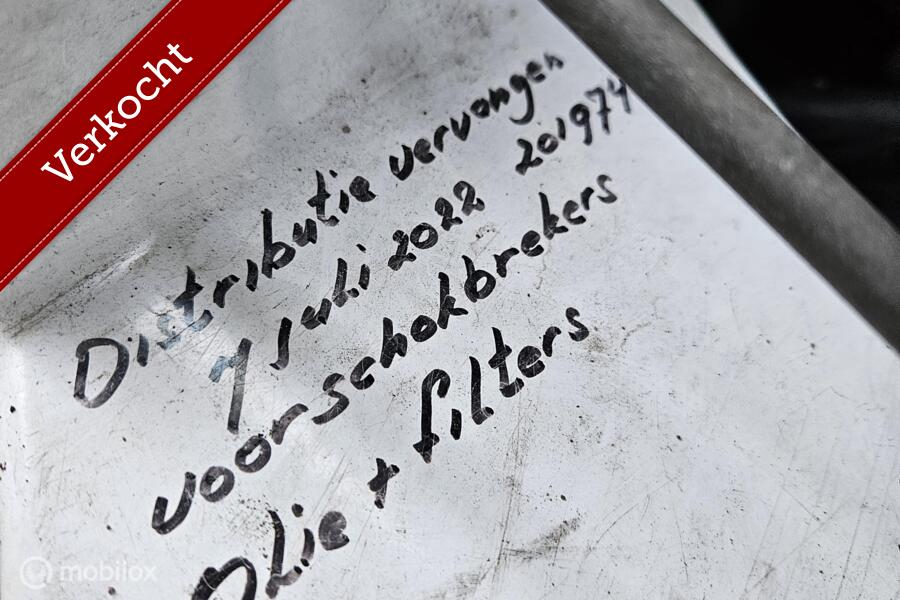 Verkocht
Distributie vervangen
7 Juli 2022 201974
voorschokbrekers
Olie + filters
mobilox